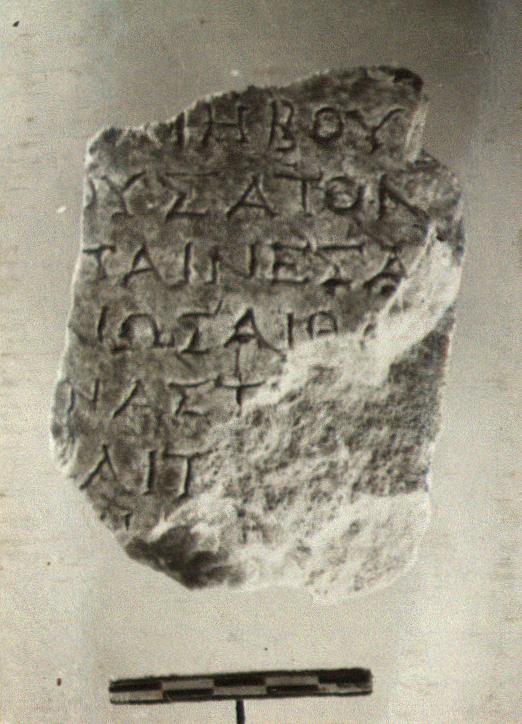 ΙΗΒΟΥ
ΥΣΑΤΟΛ
ΤΑΙΝΕΣΑ
ΙΩΣΑΙΘ
ΝΑΣΤ
ΑΙΤ